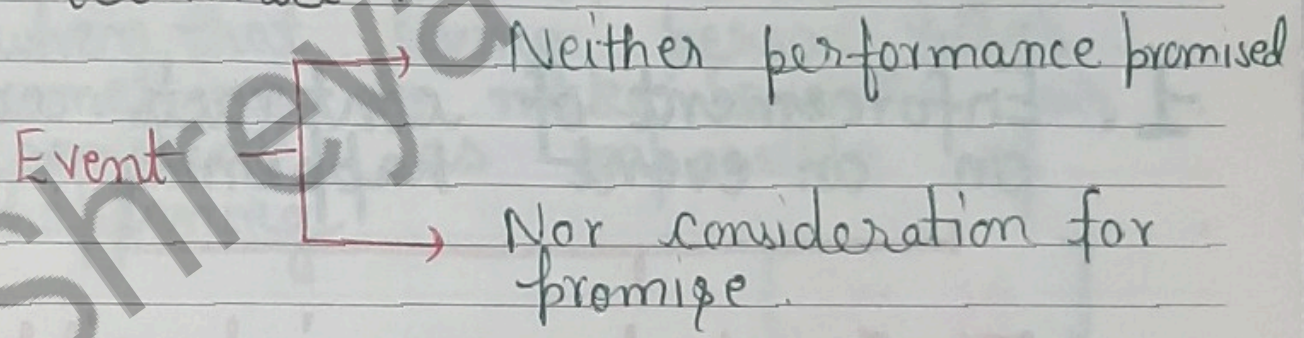 Neither performance promised
Event
Nor consideration for
promise.
Shreya